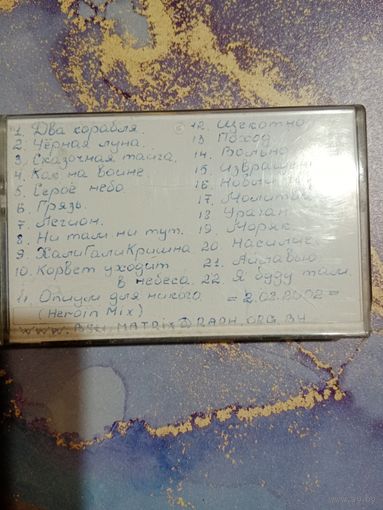 1. Два корабля.
2. Чёрная луна.
3. Сказочная тайга.
4. Как на войне
5. Серое небо
6. Грязь.
7. Легион.
8. Ни там ни тут.
9. ХалиГалиКришна
10. Корвет уходит
в небеса.
11. Опиум для никого
(Heroin Mix)
12. Щекотно
13 Поход
14. Вольно
15.
16.
17
18 Ураган
19 Моряк
20. Насилие.
21.
22. Я буду там.
= 2.02.2002 =
www. MATRIX RADH.ORG.BY